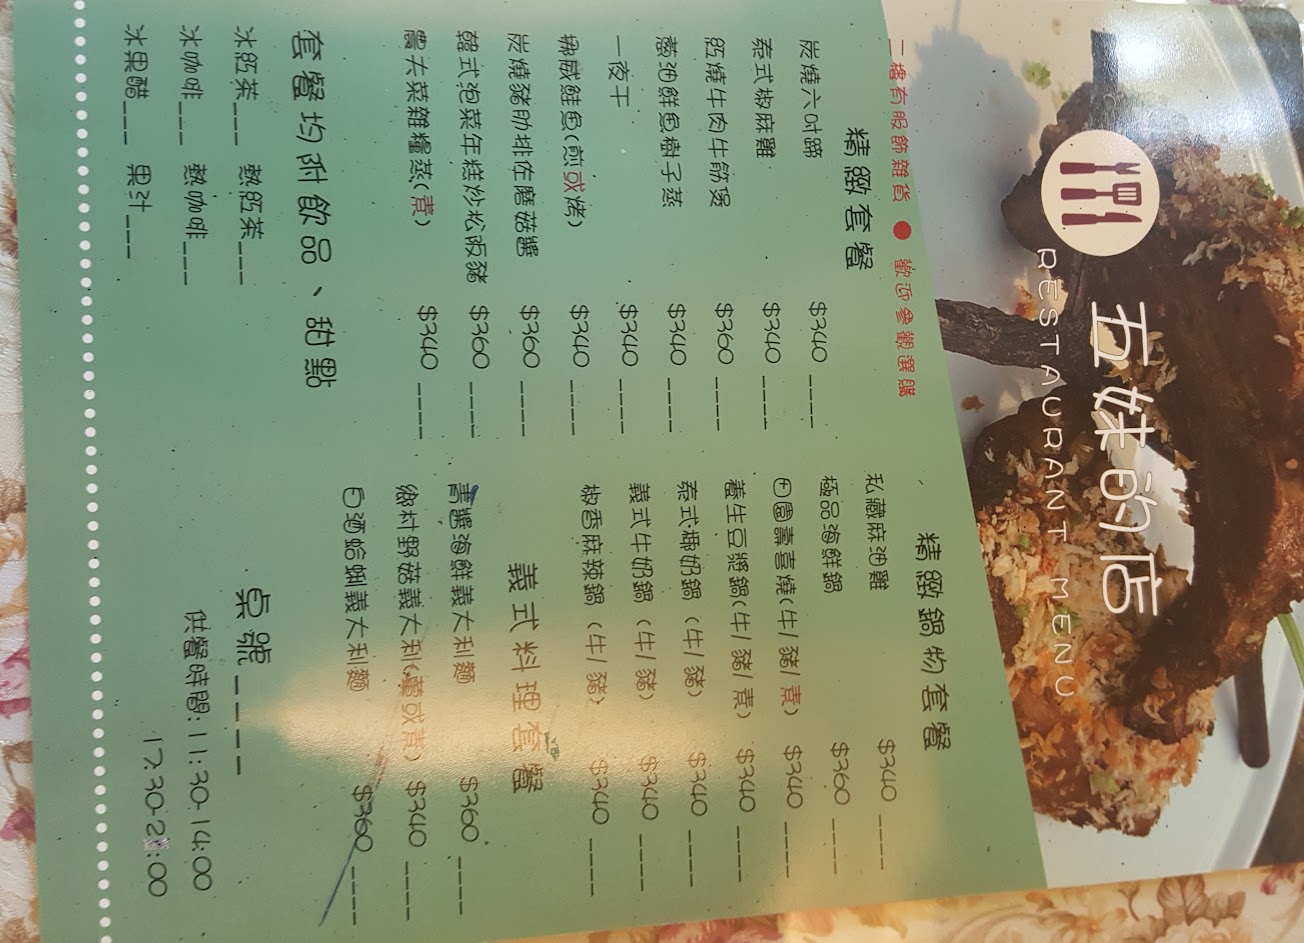 五妹的店
RESTAURANT MENU
二樓有服飾雜貨 ● 歡迎參觀選購
精緻套餐
炭燒六吋蹄 $340 ----
泰式椒麻雞 $340 ----
紅燒牛肉牛筋煲 $360 ----
蔥油鮮魚樹子蒸 $340 ----
一夜干 $340 ----
挪威鮭魚(煎或烤) $340 ----
炭燒豬肋排佐蘑菇醬 $360 ----
韓式泡菜年糕炒松阪豬 $360 ----
農夫菜雜糧蒸(素) $340 ----
套餐均附飲品、甜點
冰紅茶___ 熱紅茶___
冰咖啡___ 熱咖啡___
冰果醋___ 果汁___
精緻鍋物套餐
私藏麻油雞 $340 ----
極品海鮮鍋 $360 ----
田園壽喜燒(牛/豬/素) $340 ----
養生豆漿鍋(牛/豬/素) $340 ----
泰式椰奶鍋(牛/豬) $340 ----
義式牛奶鍋(牛/豬) $340 ----
椒香麻辣鍋(牛/豬) $340 ----
義式料理套餐
青醬海鮮義大利麵 $360 ----
鄉村野菇義大利(葷或素) $340 ----
白酒蛤蜊義大利麵 $360 ----
桌號____
供餐時間:11:30-14:00